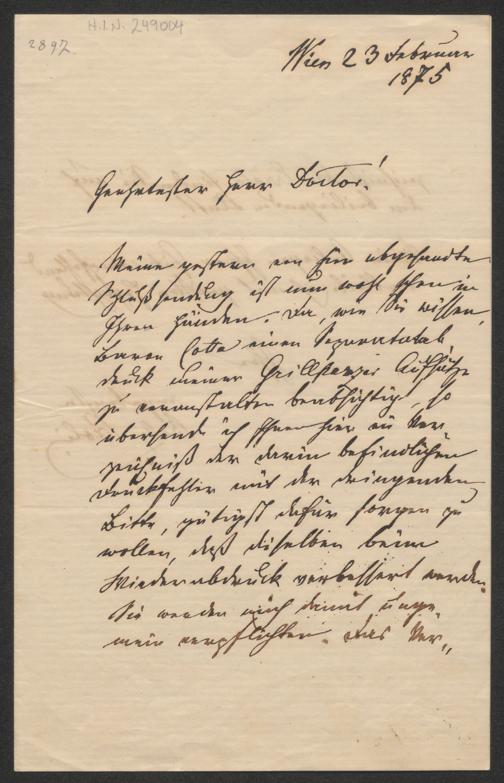 H.I.N. 249004
2892.
Wien 23 Februar
1875
Geehrtester Herr Doctor!
Meine gestern von hier abgesandte
Schlußsendung ist nun wohl schon in
Ihren Händen. Da, wie Sie wissen,
Baron Cotta einen Separatab
druck meiner Grillparzer Aufsätze
zu veranstalten beabsichtigt, so
übersende ich Ihnen hier ein Ver
zeichniß der darin befindlichen
Druckfehler mit der dringenden
Bitte, gütigst dafür sorgen zu
wollen, daß dieselben beim
Wiederabdruck verbessert werden.
Sie werden mich damit unge
mein verpflichten. Das Ver„